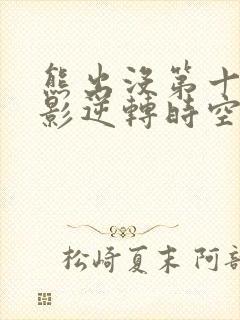 熊出没第十
影逆轉時空
松崎夏末 阿部